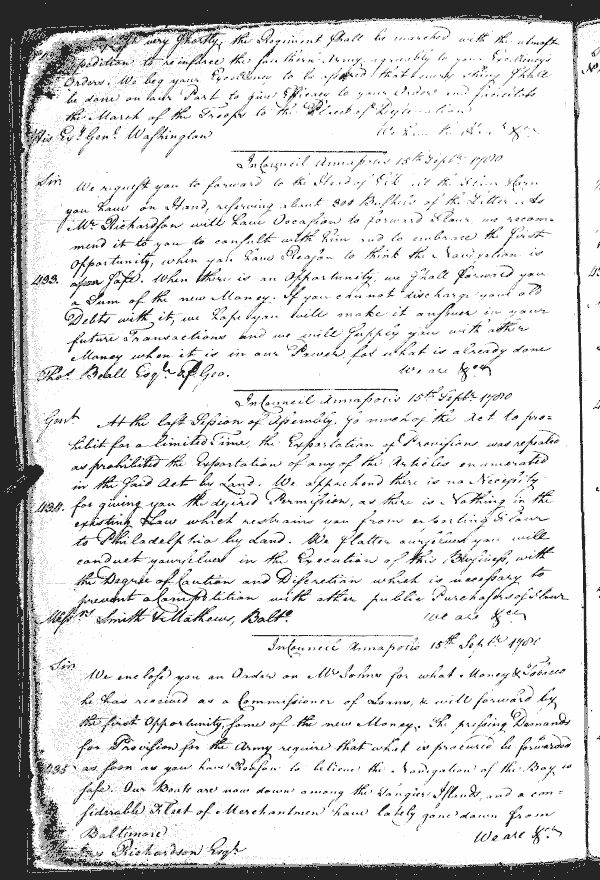 very shortly, the Regiment shall be marched with the utmost
Expedition to reinforce the southern Army, agreeably to your Excellency's
Orders. We beg your Excellency to be assured that every thing shall
be done on our Part to give Efficacy to your Orders and facilitate
the March of the Troops to the Place of Destination
We have the &ca
His Exy Genl Washington
In Council Annapolis 15th Septr 1780
Sir
We request you to forward to the Head of Elk all the Flour & Corn
you have on Hand, reserving about 800 Bushels of the Latter. As
Mr Richardson will have Occasion to forward Flour, we recom-
mend it to you to consult with him and to embrace the first
Opportunity, when you have Reason to think the Navigation is
433. safe. When there is an Opportunity, we shall forward you
a Sum of the new Money. If you cannot discharge your old
Debts with it, we hope you will make it answer in your
future Transactions and we will supply you with other
Money when it is in our Power, for what is already done
We are &ca
Thos Beall Esqr of Geo.
In Council Annapolis 15th Septr 1780
Gent.
At the last Session of Assembly, so much of the Act to pro-
hibit for a limited Time, the Exportation of Provisions was repealed
as prohibited the Exportation of any of the Articles enumerated
in the said Act by Land. We apprehend there is no Necessity
434. for giving you the desired Permission, as there is Nothing in the
existing Law which restrains you from exporting Flour
to Philadelphia by Land. We flatter ourselves you will
conduct yourselves in the Execution of this Business, with
the Degree of Caution and Discretion which is necessary to
prevent a Competition with other public Purchasers of Flour
We are &ca
Messrs Smith & Mathews, Balto.
In Council Annapolis 15th Septr 1780
Sir
We enclose you an Order on Mr Johns for what Money & Tobacco
he has received as a Commissioner of Loans, & will forward by
the first Opportunity, some of the new Money. The pressing Demands
for Provision for the Army require that what is procured be forwarded
435 as soon as you have Reason to believe the Navigation of the Bay is
safe. Our Boats are now down among the Tangier Islands, and a con-
siderable Fleet of Merchantmen have lately gone down from
Baltimore
We are &ca
Richardson Esqr